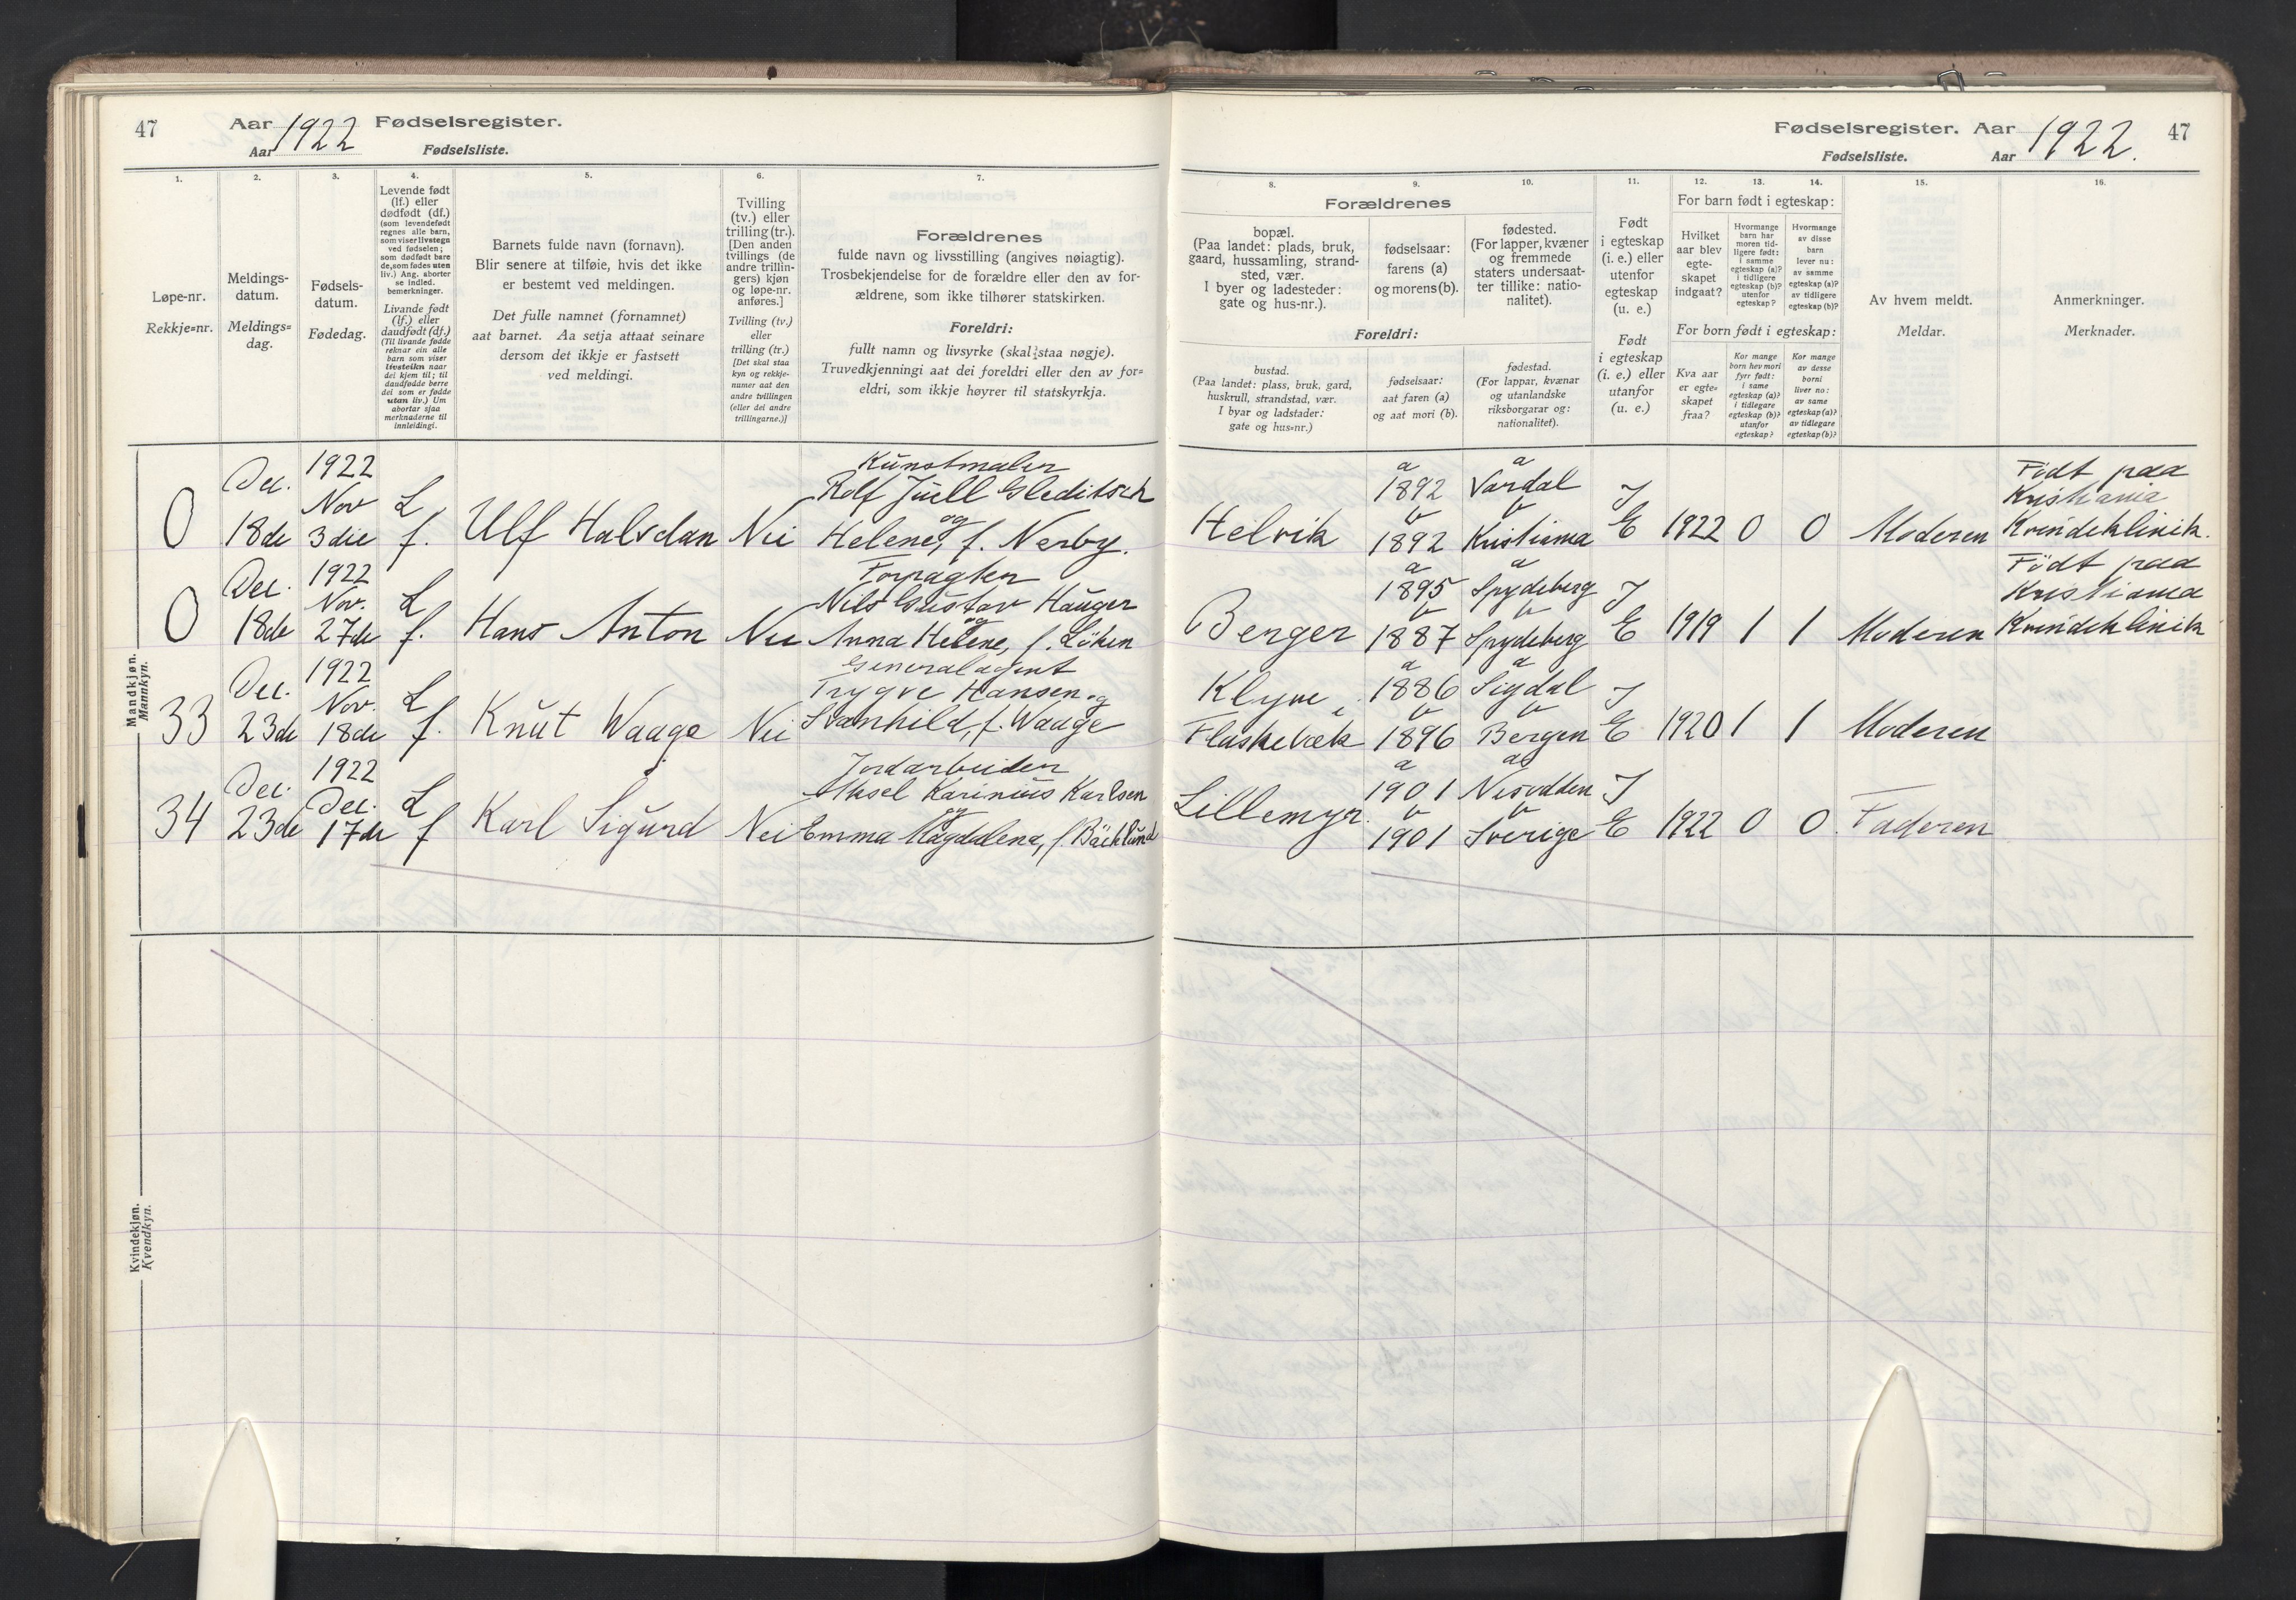 47
Aar 1922 Fødselsregister.
Aar Fødselsliste.
Fødselsregister. Aar 1922.
Fødselsliste. Aar
47
1.
Løpe-nr.
Rekkje-nr.
2.
Meldings-
datum.
Meldings-
dag.
3.
Fødsels-
datum.
Fødedag.
4.
Levende født
(lf.) eller
dødfødt (df.)
(som levendefødt
regnes alle barn,
som viser livstegn
ved fødselen;
som dødfødt bare
de, som fødes uten
liv.) Ang. aborter
se indled.
bemerkninger.
Livande født
(lf.) eller
daudfødt (df.)
(Til livande fødde
reknar ein alle
barn som viser
livsteikn naar
dei kjem til; til
daudfødde berre
dei som er fødde
utan liv.) Um
abortar sjaa
merknaderne til
innleidingi.
5.
Barnets fulde navn (fornavn).
Blir senere at tilføie, hvis det ikke
er bestemt ved meldingen.
Det fulle namnet (fornamnet)
aat barnet. Aa setja attaat seinare
dersom det ikkje er fastsett
ved meldingi.
6.
Tvilling
(tv.) eller
trilling (tr.).
[Den anden
tvillings (de
andre trillin-
gers) kjøn
og løpe-nr.
anføres.]
Tvilling (tv.)
eller
trilling (tr.)
[Det skal staa
kyn og rekkje-
numer aat den
andre tvillingen
(eller dei andre
trillingarne.)]
7.
Forældrenes
fulde navn og livsstilling (angives nøiagtig).
Trosbekjendelse for de forældre eller den av for-
ældrene, som ikke tilhører statskirken.
Foreldri:
fullt namn og livsyrke (skal staa nøgje).
Truvedkjenningi aat dei foreldri eller den av for-
eldri, som ikkje høyrer til statskyrkja.
Forældrenes
8.
bopæl.
(Paa landet: plads, bruk,
gaard, hussamling, strand-
sted, vær.
I byer og ladesteder:
gate og hus-nr.).
9.
fødselsaar:
farens (a)
og morens (b).
10.
fødested.
(For lapper, kvæner
og fremmede
staters undersaat-
ter tillike: natio-
nalitet).
Foreldri:
bustad.
(Paa landet: plass, bruk, gard,
huskrull, strandstad, vær.
I byar og ladstader:
gate og hus-nr.)
fødselsaar:
aat faren (a)
og aat mori (b).
fødestad.
(For lappar, kvænar
og utanlandske
riksborgarar og:
nationalitet).
11.
Født
i egteskap
(i. e.) eller
utenfor
egteskap
(u. e.)
Født
i egteskap
(i. e.) eller
utanfor
(u. e.)
For barn født i egteskap:
12.
Hvilket
aar blev
egte-
skapet
indgaat?
13.
Hvormange
barn har
moren tid-
ligere født:
i samme
egteskap (a)?
i tidligere
egteskap (b)?
utenfor
egteskap?
14.
Hvormange
av disse
barn
lever nu:
av samme
egteskap (a)?
av tidligere
egteskap (b)?
For born født i egteskap:
Kva aar
er egte-
skapet
fraa?
Kor mange
born hev mori
fyrr født:
i same
egteskap (a)?
i tidlegare
egteskap (b)?
utanfor
egteskap?
Kor mange
av desse
borni
liver no:
av same
egteskap (a)?
av tidlegare
egteskap (b)?
15.
Av hvem meldt.
Meldar.
16.
Anmerkninger.
Merknader.
Mandkjøn.
Mannkyn.
0
Dec.
18de
1922
Nov
3die
L
f.
Ulf Halvdan
Nei
Kunstmaler
Rolf Juell Gleditsch
og
Helene, f. Nerby.
Helvik
a
1892
b
1892
a
Vardal
b
Kristiania
I
E
1922
0
0
Moderen
Født paa
Kristiania
Kvindeklinik.
0
Dec.
18de
1922
Nov.
27de
L
f.
Hans Anton
Nei
Forpagter
Nils Gustav Hauger
og
Anna Helene, f. Löken
Berger
a
1895
b
1887
a
Spydeberg
b
Spydeberg
I
E
1919
1
1
Moderen
Født paa
Kristiania
Kvindeklinik
33
Dec.
23de
1922
Nov.
18de
L
f.
Knut Waage
Nei
Generalagent
Trygve Hansen og
Svanhild, f. Waage
Klyve,
Flaskebæk
a
1886
b
1896
a
Sigdal
b
Bergen
I
E
1920
1
1
Moderen
34
Dec.
23de
1922
Dec.
17de
L
f
Karl Sigurd
Nei
Jordarbeider
Aksel Karinius Karlsen
og
Emma Magdalena, f. Bäcklund
Lillemyr.
a
1901
b
1901
a
Nesodden
b
Sverige
I
E
1922
0
0
Faderen
Kvindekjøn.
Kvendkyn.